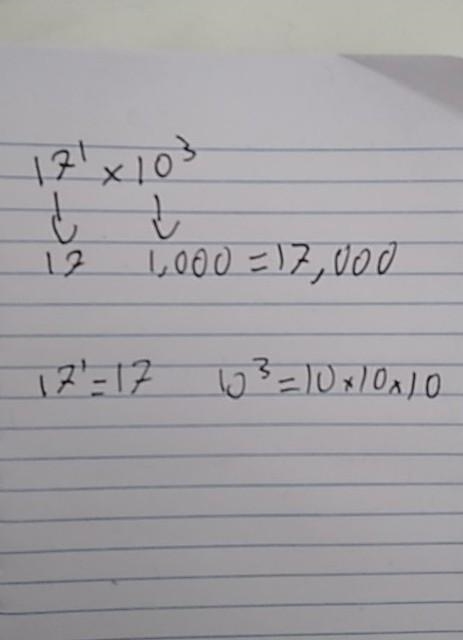 17¹ × 10³
↓ ↓
17 1,000 = 17,000
17¹ = 17 10³ = 10 × 10 × 10